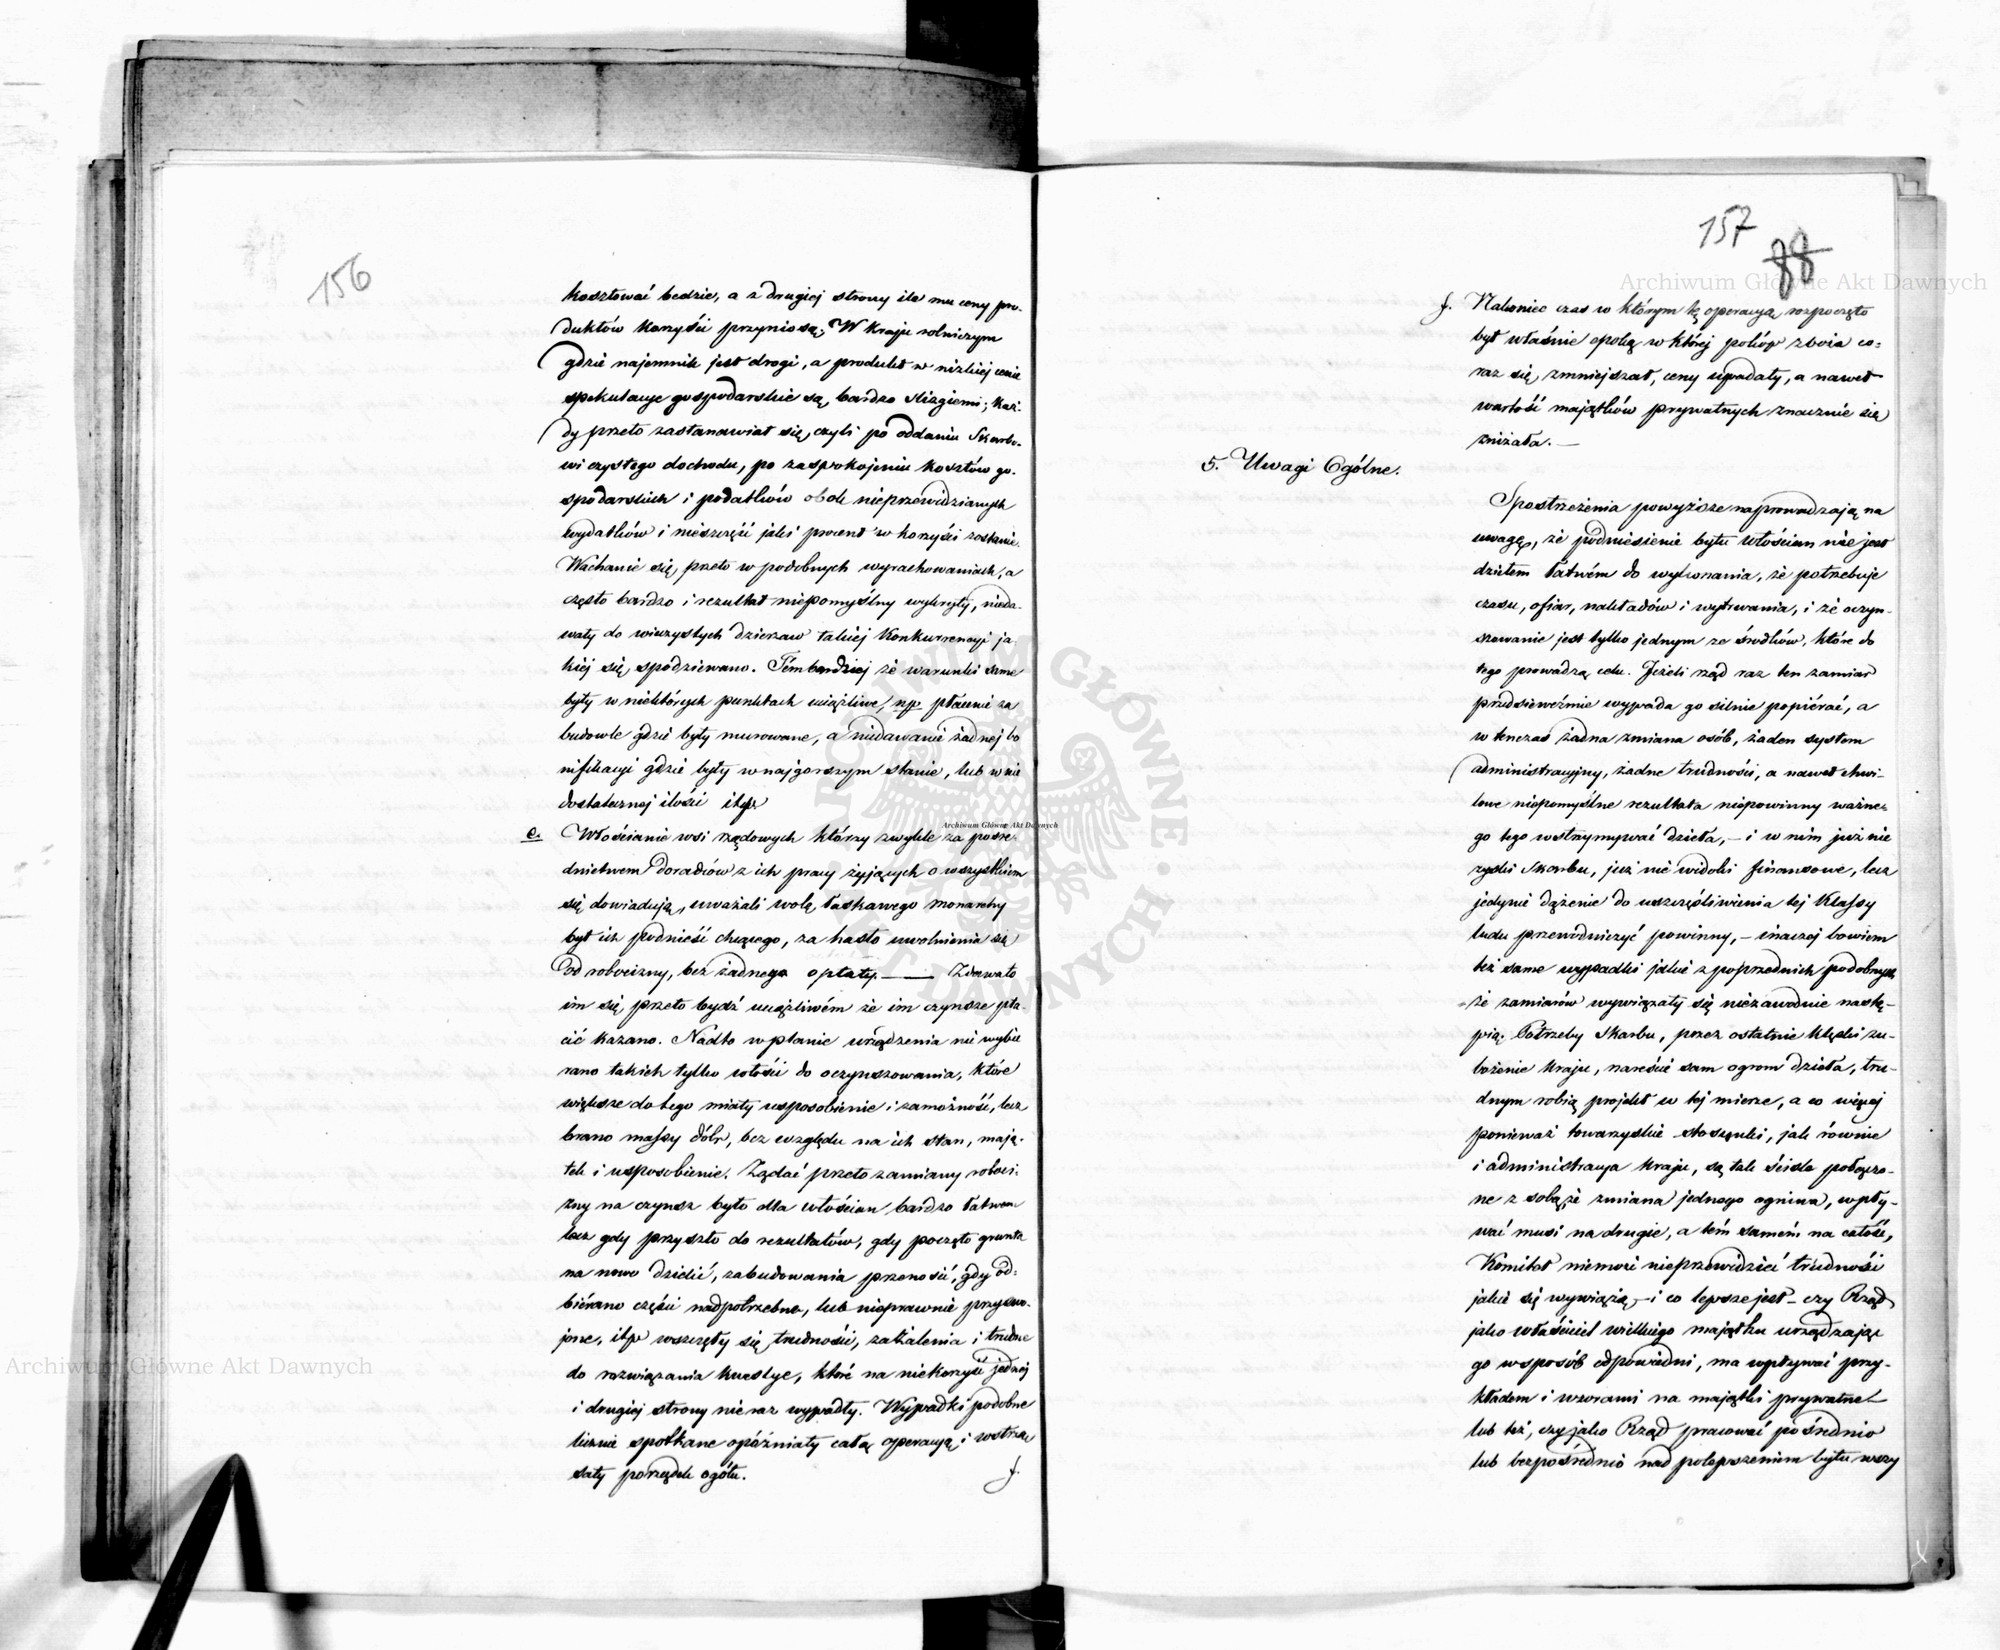 156
kosztować bedzie, a z drugiej strony ile mu ceny pro-
duktów korzyści przyniosą; W kraju rolniczym
gdzie najemnik jest drogi, a produkt w nizkiej cenie
spekulacye gospodarskie są bardzo slizgiemi; każ-
dy przeto zastanawiał się, czyli po oddaniu Skarbo-
wi czystego dochodu, po zaspokojeniu kosztów go-
spodarskich i podatków obok nieprzewidzianych
wydatków i nieszczęść jaki procent w korzyści zostanie.
Wachanie się przeto w podobnych wyrachowaniach, a
często bardzo i rezultat niepomyślny wykryty, nieda-
wały do wieczystych dzierzaw takiej Konkurrencyi ja-
kiej się spodziewano. Tém bardziej że warunki same
były w niektórych punktach uciążliwe, np. płacenie za
budowle gdzie były murowane, a niedawanie żadnej bo
nifikacyi gdzie były w najgorszym stanie, lub w nie
dostatecznej ilości itp.
e. Włościanie wsi rządowych którzy zwykle za pośre-
dnictwem Doradców z ich pracy żyjących o wszystkiem
się dowiadują, uważali wolę łaskawego monarchy
byt ich podnieść chcącego, za hasło uwolnienia się
od robocizny, bez żadnego opłaty. — Zdawało
im się przeto bydź uciążliwém że im czynsze pła-
cić kazano. Nadto w planie urządzenia nie wybie
rano takich tylko włości do oczynszowania, które
większe do tego miały usposobienie i zamożność, lecz
brano massy dóbr, bez względu na ich stan, mają-
tek i usposobienie. Żądać przeto zamiany roboci-
zny na czynsz było dla włościan bardzo łatwem
lecz gdy przyszło do rezultatów, gdy poczęto grunta
na nowo dzielić, zabudowania przenosić, gdy od-
biérano części nadpotrzebne, lub nieprawnie przyswo-
jone, itp wszczęły się trudności, zażalenia i trudne
do rozwiązania kwestye, które na niekorzyść jednej
i drugiej strony nieraz wypadły. Wypadki podobne
licznie spotkane opóźniały całą operacyą i wstrzą
sały porządek ogółu.
f.
157
88
f. Nakoniec czas w którym tę operacyą rozpoczęto
był właśnie epoką w której pokóp zboża co-
raz się zmniejszał, ceny upadały, a nawet
wartość majątków prywatnych znacznie się
zniżała. —
5. Uwagi Ogólne.
Spostrzeżenia powyższe naprowadzają na
uwagę, że podniesienie bytu włościan nie jest
dziełem łatwém do wykonania, że potrzebuje
czasu, ofiar, nakładów i wytrwania, i że oczyn-
szowanie jest tylko jednym ze środków, które do
tego prowadzą celu. Jeżeli rząd raz ten zamiar
przedsieweźmie wypada go silnie popiérać, a
w tenczas żadna zmiana osób, żaden system
administracyjny, żadne trudności, a nawet chwi-
lowe niepomyślne rezultata niepowinny ważne-
go tego wstrzymywać dzieła, — i w nim już nie
zyski Skarbu, już nie widoki finansowe, lecz
jedynie dążenie do uszczęśliwienia tej Klassy
ludu przewodniczyć powinny, — inaczej bowiem
też same wypadki jakie z poprzednich podobnych
że zamiarów wywiązały się niezawodnie nastą-
pią. Potrzeby Skarbu, przez ostatnie klęski zu-
bożenie kraju, nareście sam ogrom dzieła, tru-
dnym robią projekt w tej mierze, a co więcej
ponieważ towarzyskie stosunki, jak równie
i administracya kraju, są tak ściśle połączo-
ne z sobą, że zmiana jednego ogniwa, wpły-
wać musi na drugie, a tém samém na całość,
Komitet niemoże nieprzewidzieć trudności
jakie się wywiążą — i co lepsze jest — czy Rząd
jako właściciel wielkiego majątku urządzając
go w sposób odpowiedni, ma wpływać przy-
kładem i wzorami na majątki prywatne
lub też, czy jako Rząd pracować pośrednio
lub bezpośrednio nad polepszeniem bytu wszy
Archiwum Główne Akt Dawnych
Archiwum Główne Akt Dawnych
Archiwum Główne Akt Dawnych
ARCHIWUM GŁÓWNE AKT DAWNYCH